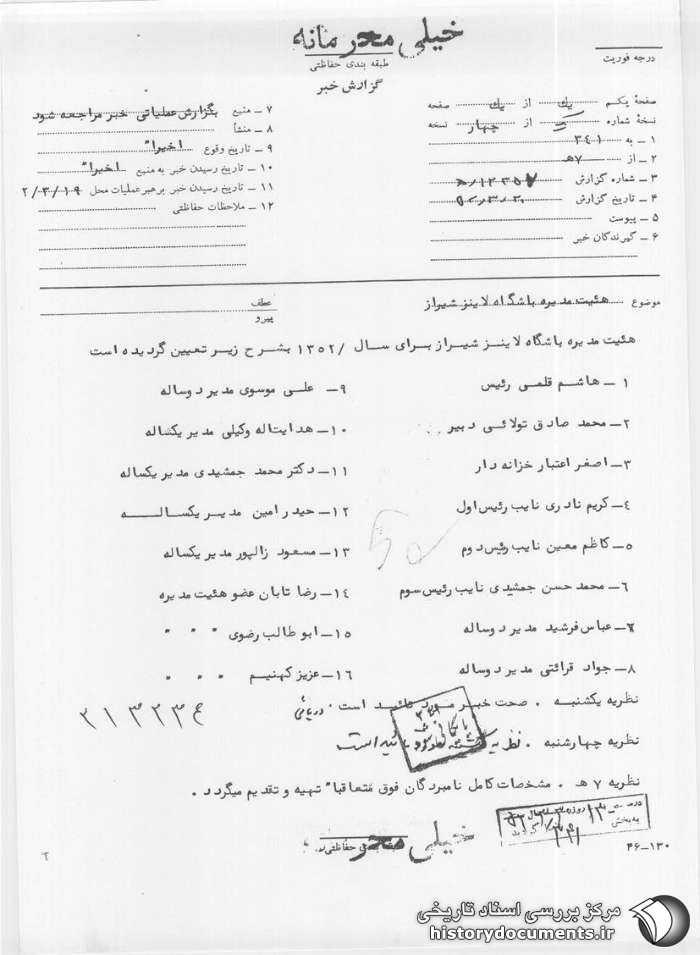 خیلی محرمانه
طبقه بندی حفاظتی
گزارش خبر
درجه فوریت
صفحهٔ یکم یک از یک صفحه
نسخهٔ شماره از چهار نسخه
۱ ـ به ۳٤۱
۲ ـ از ۷ه‍
۳ ـ شماره گزارش
۴ ـ تاریخ گزارش
۵ ـ پیوست
۶ ـ گیرندگان خبر
۷ ـ منبع بگزارش عملیاتی خبر مراجعه شود
۸ ـ منشأ
۹ ـ تاریخ وقوع اخیرا"
۱۰ ـ تاریخ رسیدن خبر به منبع اخیرا"
۱۱ ـ تاریخ رسیدن خبر برهبر عملیات محل ۲/۳/۱۹
۱۲ ـ ملاحظات حفاظتی
موضوع هئیت مدیره باشگاه لاینز شیراز
عطف
پیرو
هئیت مدیره باشگاه لاینز شیراز برای سال /۱۳۵۲ بشرح زیر تعیین گردیده است
۱ ـ هاشم قلمی رئیس
۲ـ محمد صادق تولائی دبیر
۳ـ اصغر اعتبار خزانه دار
٤ـ کریم نادری نایب رئیس اول
۵ـ کاظم معین نایب رئیس دوم
۶ـ محمد حسن جمشیدی نایب رئیس سوم
۷ـ عباس فرشید مدیر دوساله
۸ـ جواد قرائتی مدیر دوساله
۹ـ علی موسوی مدیر دوساله
۱۰ـ هدایت‌اله وکیلی مدیر یکساله
۱۱ـ دکتر محمد جمشیدی مدیر یکساله
۱۲ـ حیدر امین مدیر یکساله
۱۳ـ مسعود زالپور مدیر یکساله
۱٤ـ رضا تابان عضو هئیت مدیره
۱۵ـ ابوطالب رضوی " " "
۱۶ـ عزیز کهنیم " " "
نظریه یکشنبه . صحت خبر مورد تائید است .
نظریه چهارشنبه . نظریه یکشنبه مورد تائید است
نظریه ۷ ه‍ـ . مشخصات کامل نامبردگان فوق متعاقبا" تهیه و تقدیم میگردد .
خیلی محرمانه
طبقه بندی حفاظتی
۴۶-۱۳۰
مرکز بررسی اسناد تاریخی
historydocuments.ir